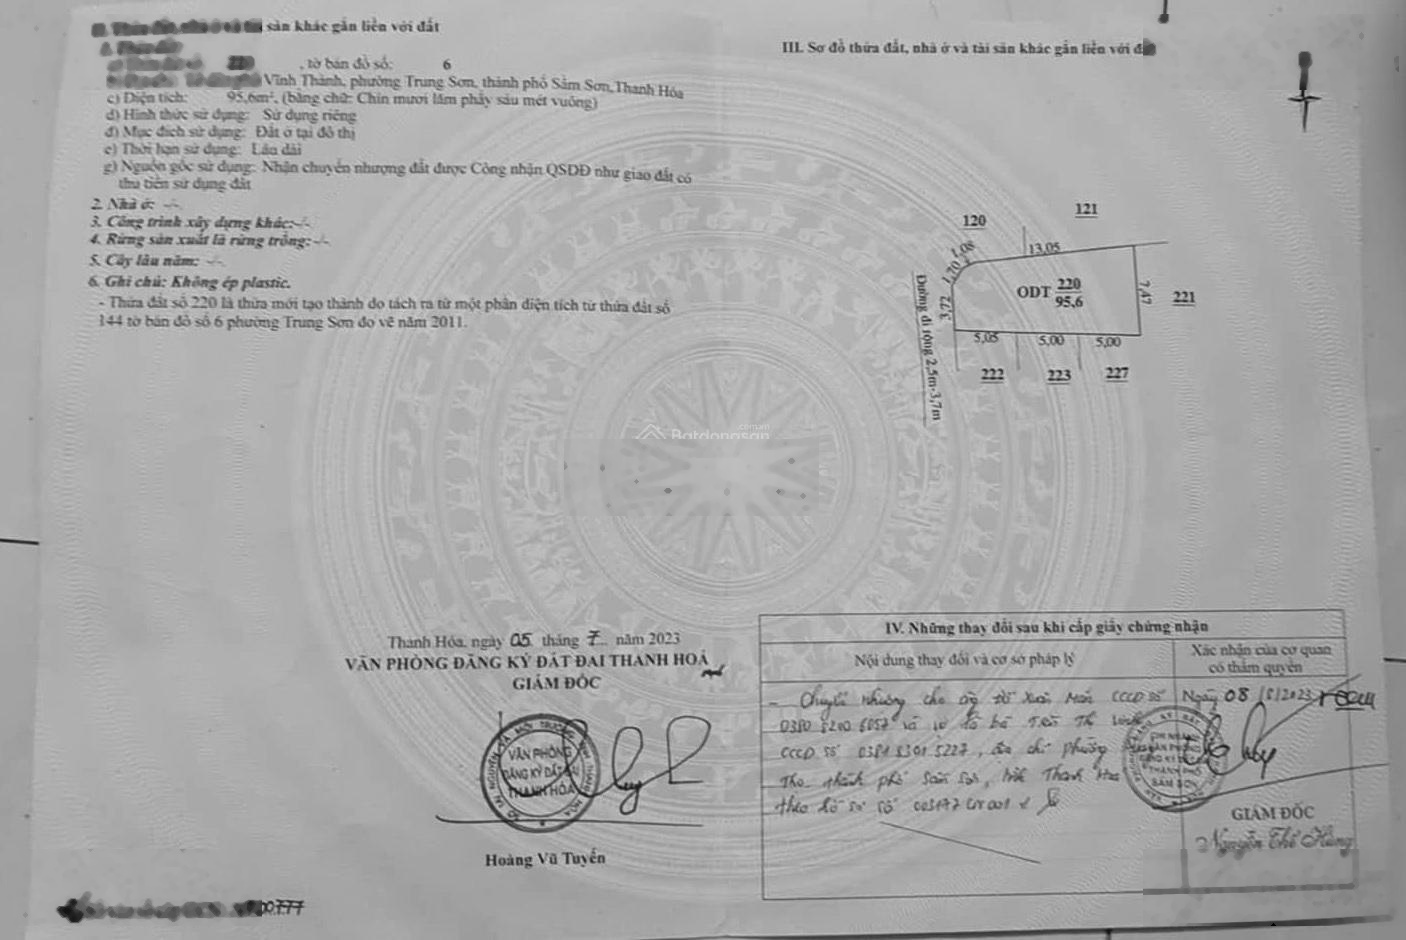 sản khác gắn liền với đất
, tờ bản đồ số: 6
Vĩnh Thành, phường Trung Sơn, thành phố Sầm Sơn, Thanh Hóa
c) Diện tích: 95,6m², (bằng chữ: Chín mươi lăm phẩy sáu mét vuông)
d) Hình thức sử dụng: Sử dụng riêng
đ) Mục đích sử dụng: Đất ở tại đô thị
e) Thời hạn sử dụng: Lâu dài
g) Nguồn gốc sử dụng: Nhận chuyển nhượng đất được Công nhận QSDĐ như giao đất có
thu tiền sử dụng đất
2. Nhà ở: -/-
3. Công trình xây dựng khác:-/-
4. Rừng sản xuất là rừng trồng:-/-
5. Cây lâu năm: -/-
6. Ghi chú: Không ép plastic.
- Thửa đất số 220 là thửa mới tạo thành do tách ra từ một phần diện tích từ thửa đất số
144 tờ bản đồ số 6 phường Trung Sơn đo vẽ năm 2011.
Thanh Hóa, ngày 05 tháng 7 năm 2023
VĂN PHÒNG ĐĂNG KÝ ĐẤT ĐAI THANH HOÁ
GIÁM ĐỐC
VĂN PHÒNG
ĐĂNG KÝ ĐẤT ĐAI
THANH HÓA
Hoàng Vũ Tuyến
III. Sơ đồ thửa đất, nhà ở và tài sản khác gắn liền với
120
121
1,08
13,05
1,70
3,72
ODT 220
95,6
7,47
221
5,05
5,00
5,00
222
223
227
Đường đi rộng 2,5m-3,7m
Batdongsan
.com.vn
IV. Những thay đổi sau khi cấp giấy chứng nhận
Nội dung thay đổi và cơ sở pháp lý
Xác nhận của cơ quan
có thẩm quyền
- Chuyển nhượng cho ông CCCD số
và vợ là bà
CCCD số 0381 8301 5227, địa chỉ phường
Thọ, thành phố Sầm Sơn, tỉnh Thanh Hóa
theo hồ sơ số
Ngày 08/8/2023
GIÁM ĐỐC
Nguyễn Thế Hùng